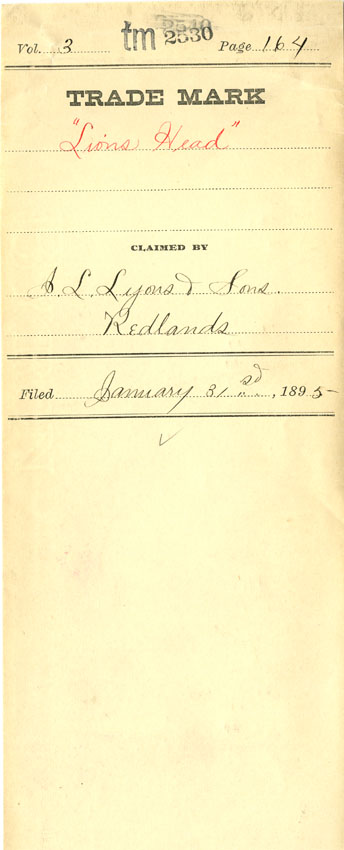 Vol. 3 tm 2530 Page 164
TRADE MARK
"Lions Head"
CLAIMED BY
L. Lyons & Sons.
Redlands
Filed January 31 sd, 1895